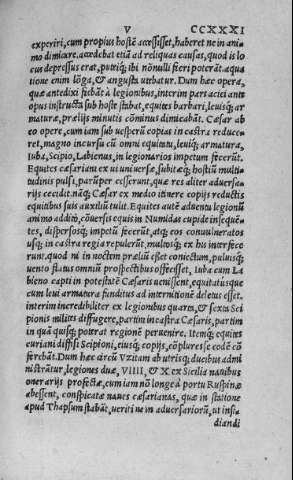 V CCXXXI
experiri, cum propius hostē accessisset, haberet ne in ani-
mo dimicare. accedebat etiā ad reliquas causas, quod is lo
cus depressus erat, putriq́; ibi nōnulli fieri poterāt. aqua
tione enim lōga, & angusta utebatur. Dum hæc opera,
quæ antedixi fiebāt à legionibus, interim pars aciei ante
opus instructa sub hoste stabat, equites barbari, leuisq́; ar
maturæ, prælijs minutis cōminus dimicabāt. Cæsar ab
eo opere, cum iam sub uesperū copias in castra reduce-
ret, magno incursu cū omni equitatu, leuiq́; armatura,
Iuba, Scipio, Labienus, in legionarios impetum fecerūt.
Equites cæsariani ex ui uniuersæ, subitæq́; hostiū mul-
titudinis pulsi, parūper cesserunt, quæ res aliter aduersa-
rijs cecidit. náq́; Cæsar ex medio itinere copijs reductis
equitibus suis auxiliū tulit. Equites autē aduentu legionū
animo addito, cōuersis equis in Numidas cupide inseque-
tes, dispersosq́; impetū fecerūt, atq; eos conuulneratos
usq; in castra regia repulerūt, multosq́; ex his interfece
runt. quod ni in noctem præliū esset coniectum, puluisq́;
uento flatus omniū prospectibus offecisset, Iuba cum La
bieno capti in potestatē Cæsaris uenissent, equitatusque
cum leui armatura funditus ad internitionē deletus esset.
interim incredibiliter ex legionibus quarta, & sexta Sci
pionis milites diffugere, partim in castra Cæsaris, partim
in quā quisq; poterat regionē peruenire. Itemq́; equites
curiani diffisi Scipioni, eiusq́; copijs, cōplures se eodē cō
ferebāt. Dum hæc circū Vzitam ab utrisq; ducibus admi
nistrātur, legiones duæ, VIIII, & X ex Sicilia nauibus
onerarijs profectæ, cum iam nō longe à portu Ruspinæ
abessent, conspicatæ naues cæsarianas, quæ in statione
apud Thapsum stabāt, ueriti ne in aduersariorū, ut insi-
diandi